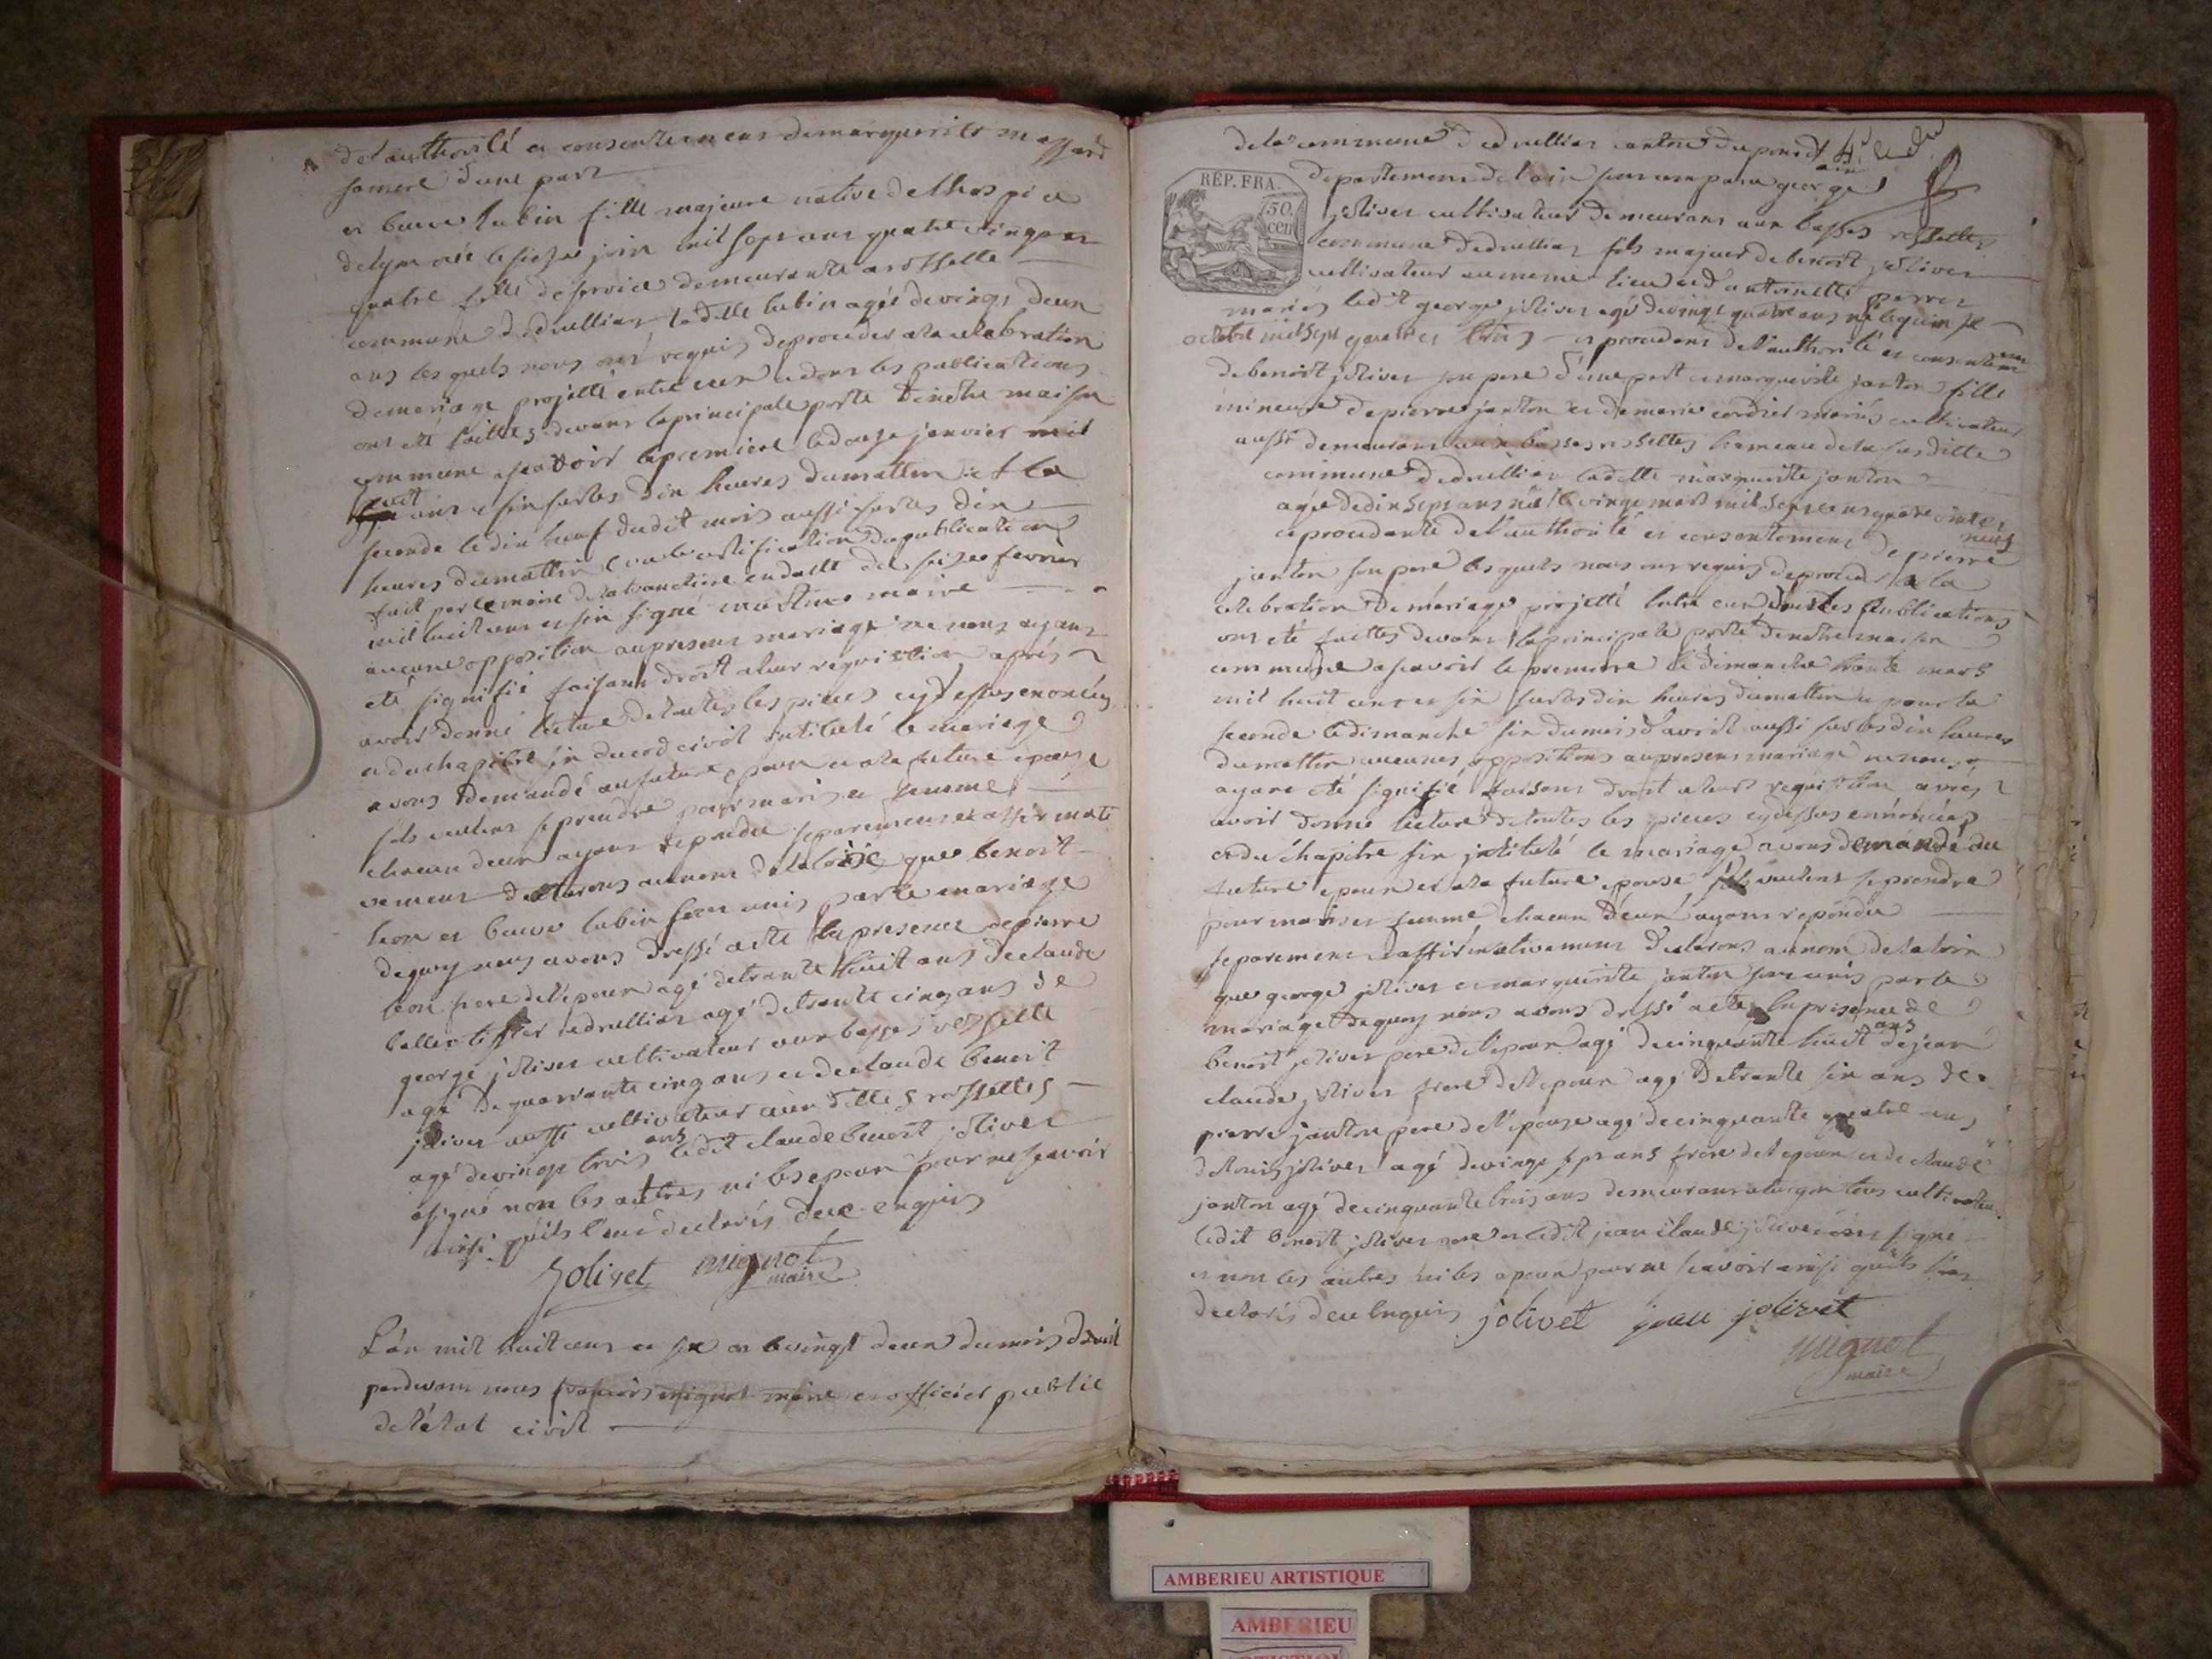 de lauthorité et consentement de marguerite massard
sa mere d'une part
et bauve lubin fille majeure native de lhospice
de lyon née le seize join mil sept cens quatre vingt et
quatre fille de service demeurante a rossette
commune dedruillias ladelle lubin agée de vingt deux
ans les quels nous ont requis de proceder ala celebration
de mariage projetté entre eux et dont les publications
ont été faittes devant la principale porte de notre maison
commune scavoir la premiere le douze janvier mil
huit cens et six sur les dix heures du mattin et la
seconde le dix neuf dudit mois aussi sur les dix
heures du mattin et certification de publication
fait par le maire de la tranclière en datte du seize fevrier
mil huit cens et six signé maire
aucune opposition au present mariage ne nous ayant
eté signifié faisant droit a leur requisition aprés
avoir donné lecture de toutes les pieces cy dessus enoncées
et du chapitre six du cod civil intitulé le mariage
avons demandé au future epoux et ala future epouse
sils veulent se prendre pour maris et femme
chacun deux ayant repondu separement et affirmati
vement declarons au nom de la loix que benoit
leon et bauve lubin sont unis par le mariage
de quoy nous avons dressé acte en presence de pierre
leon frere de l'epoux agé de trante huit ans de claude
ballet adruillias agé de trante cinq ans de
george joliver cultivateur aux basses rossette
agé de quarrante cinq ans et de claude benoit
joliver aussi cultivateur aux dittes rossettes
agé de vingt trois ans ledit claude benoit joliver
a signé non les autres ni les epoux pour ne scavoir
ainsi qu'ils l'ont declarés de ce enquis
Jolivet mignot
maire
L'an mil huit cens et six et le vingt deux du mois davril
pardevant nous françois mignot maire et officier public
de l'état civil
de la commune dedruillias canton du pont d'ain
departement de l'ain sont comparu george
RÉP. FRA.
50.
cen
joliver cultivateur demeurant aux basses rossettes
commune dedruillias fils majeur de benoit joliver
cultivateur au meme lieu et d'antoinette perret
mariés ledit george joliver agé de vingt quatre ans né le quinze
octobre mil sept et procedant de l'authorité et consentement
de benoit joliver son pere d'une part et marguerite janton fille
mineure de pierre janton et de marie cordier mariés cultivateur
aussi demeurant aux basses rossettes hameau de la susditte
commune dedruillias ladelle marguerite janton
agée de dix sept ans née le vingt mars mil sept cens quatre vingt
neuf
et procedante de l'authorité et consentement de pierre
janton son pere les quels nous ont requis de proceder a la
celebration de mariage projetté entre eux dont les publications
ont été faittes devant la principale porte de notre maison
commune a scavoir la premiere le dimanche trante mars
mil huit cens et six sur les dix heures du mattin et pour la
seconde le dimanche six du mois d'avril aussi sur les dix heures
du mattin aucunes oppositions au present mariage ne nous
ayant eté signifié faisant droit a leur requisition aprés
avoir donné lecture de toutes les pieces cy dessus enoncées
et du chapitre six intitulé le mariage avons demandé au
future epoux et ala future epouse sils veulent se prendre
pour maris et femme chacun d'eux ayant repondu
separement et affirmativement declarons au nom de la loix
que george joliver et marguerite janton sont unis par le
mariage de quoy nous avons dressé acte en presence de
benoit joliver pere de l'epoux agé de cinquante huit ans de jean
claude joliver frere de l'epoux agé de trante six ans de
pierre janton pere de l'épouse agé de cinquante quatre ans
de louis joliver agé de vingt sept ans frere de l'epoux et de claude
janton agé de cinquante trois ans demeurant tous cultivateur
ledit benoit joliver pere et ledit jean claude joliver ont signé
et non les autres ni les epoux pour ne scavoir ainsi qu'ils l'ont
declarés de ce enquis jolivet jean jolivet
mignot
maire
AMBERIEU ARTISTIQUE
AMBERIEU
ARTISTIQUE